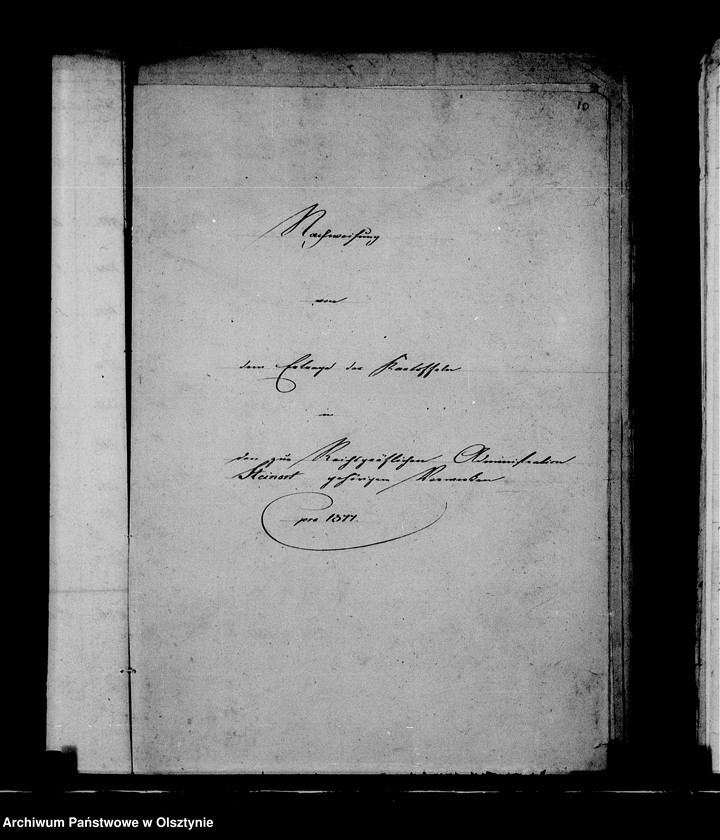 10
Nachweisung
von
dem Ertrage der Kartoffeln
in
den zur Reichsgräflichen Administration
Steinort gehörigen Vorwerken
pro 1877.
Archiwum Państwowe w Olsztynie